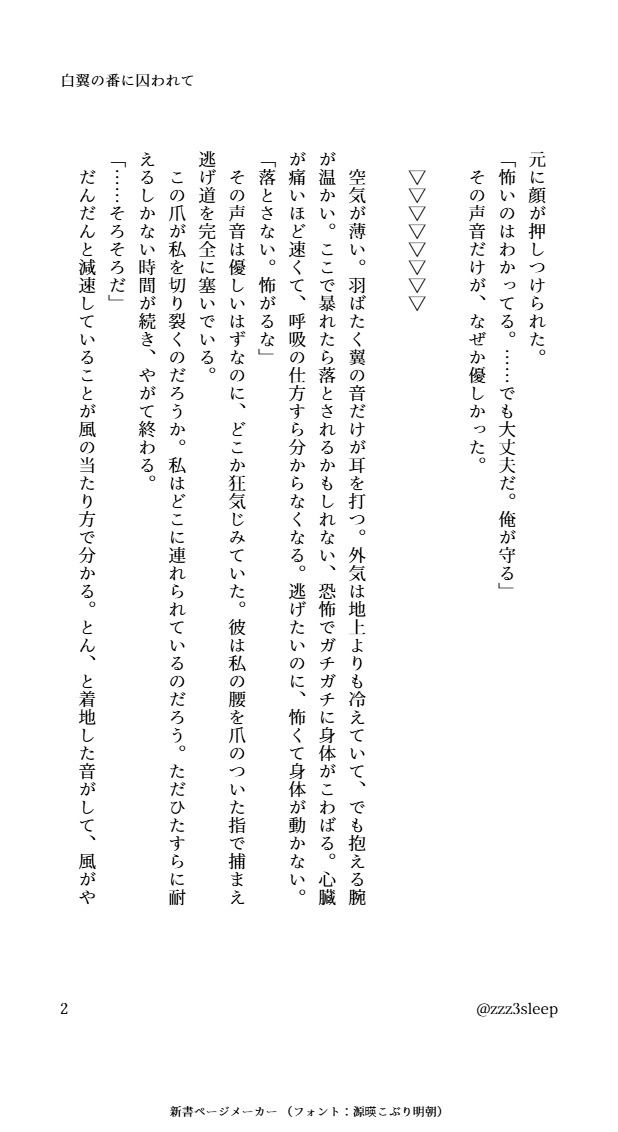 白翼の番に囚われて
元に顔が押しつけられた。
「怖いのはわかってる。……でも大丈夫だ。俺が守る」
その声音だけが、なぜか優しかった。
▽▽▽▽▽▽▽▽
空気が薄い。羽ばたく翼の音だけが耳を打つ。外気は地上よりも冷えていて、でも抱える腕
が温かい。ここで暴れたら落とされるかもしれない、恐怖でガチガチに身体がこわばる。心臓
が痛いほど速くて、呼吸の仕方すら分からなくなる。逃げたいのに、怖くて身体が動かない。
「落とさない。怖がるな」
その声音は優しいはずなのに、どこか狂気じみていた。彼は私の腰を爪のついた指で捕まえ
逃げ道を完全に塞いでいる。
この爪が私を切り裂くのだろうか。私はどこに連れられているのだろう。ただひたすらに耐
えるしかない時間が続き、やがて終わる。
「……そろそろだ」
だんだんと減速していることが風の当たり方で分かる。とん、と着地した音がして、風がや
2
@zzz3sleep
新書ページメーカー（フォント：源暎こぶり明朝）